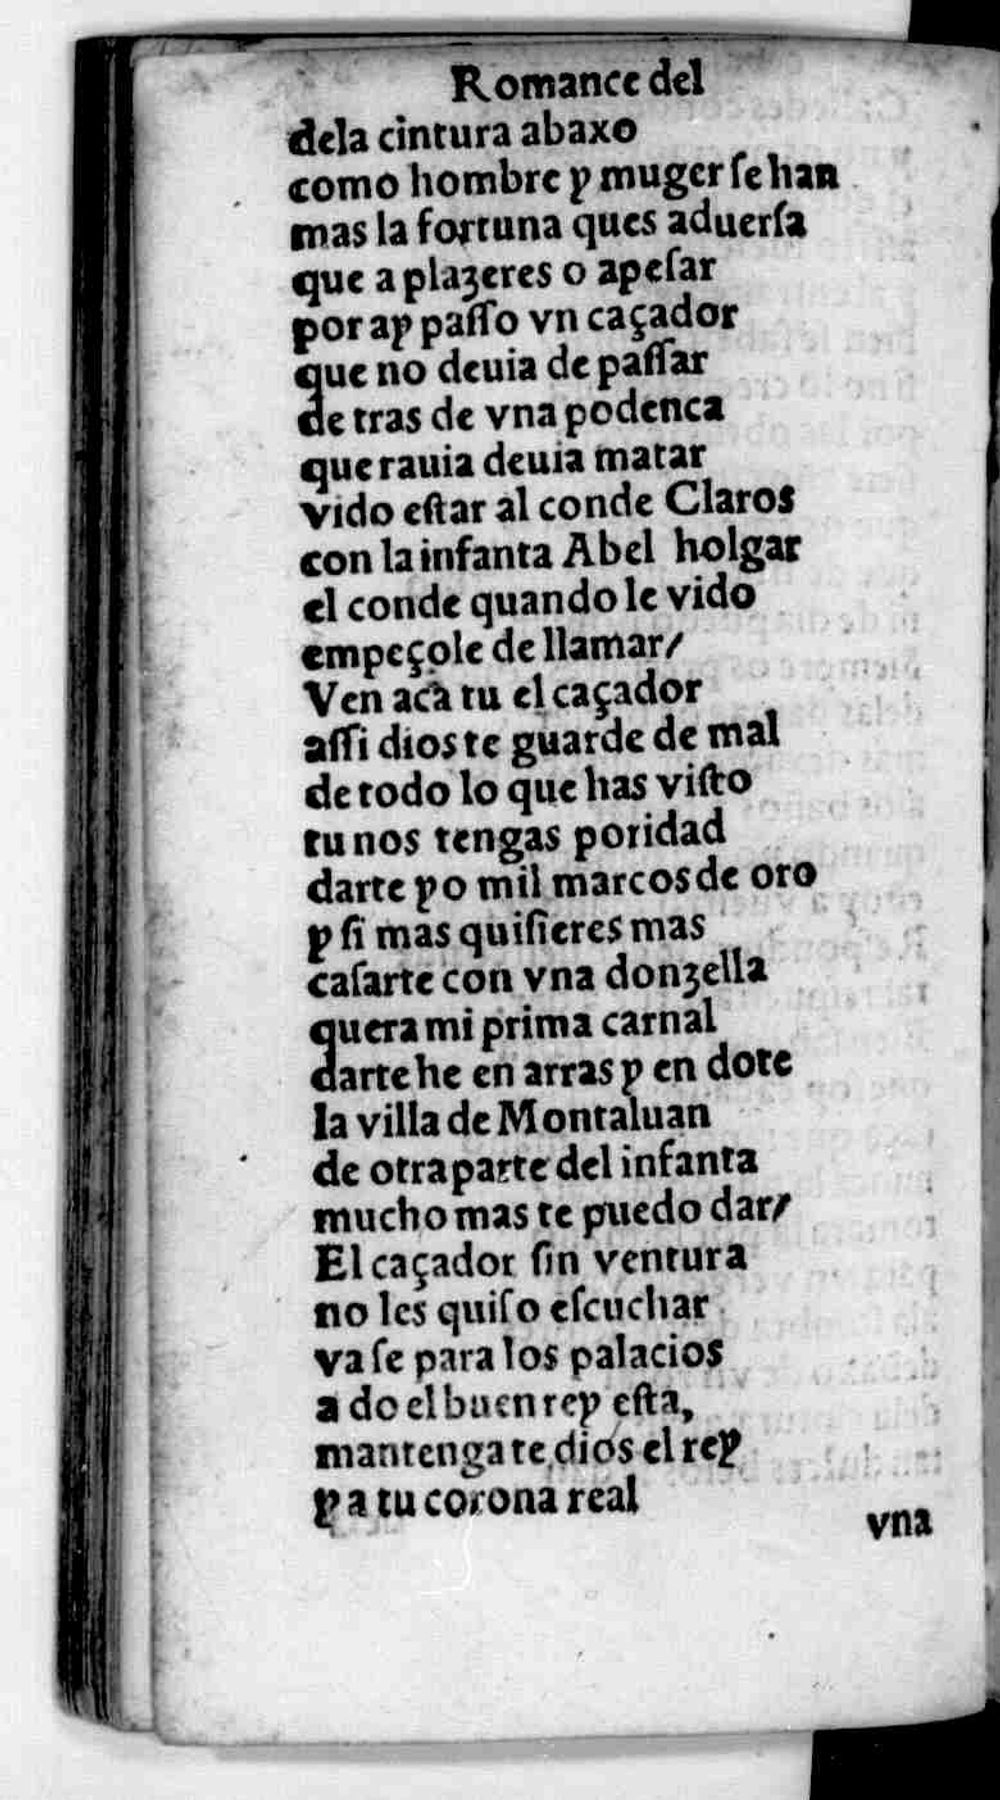 Romance del
dela cintura abaxo
como hombre y muger ſe han
mas la fortuna ques aduerſa
que a plazeres o apeſar
por ay paſſo vn caçador
que no deuia de paſſar
de tras de vna podenca
que rauia deuia matar
vido eſtar al conde Claros
con la infanta Abel holgar
el conde quando le vido
empeçole de llamar/
Ven aca tu el caçador
aſſi dios te guarde de mal
de todo lo que has viſto
tu nos tengas poridad
darte yo mil marcos de oro
y ſi mas quiſieres mas
caſarte con vna donzella
quera mi prima carnal
darte he en arras y en dote
la villa de Montaluan
de otra parte del infanta
mucho mas te puedo dar/
El caçador ſin ventura
no les quiſo eſcuchar
va ſe para los palacios
a do el buen rey eſta,
mantenga te dios el rey
y a tu corona real
vna